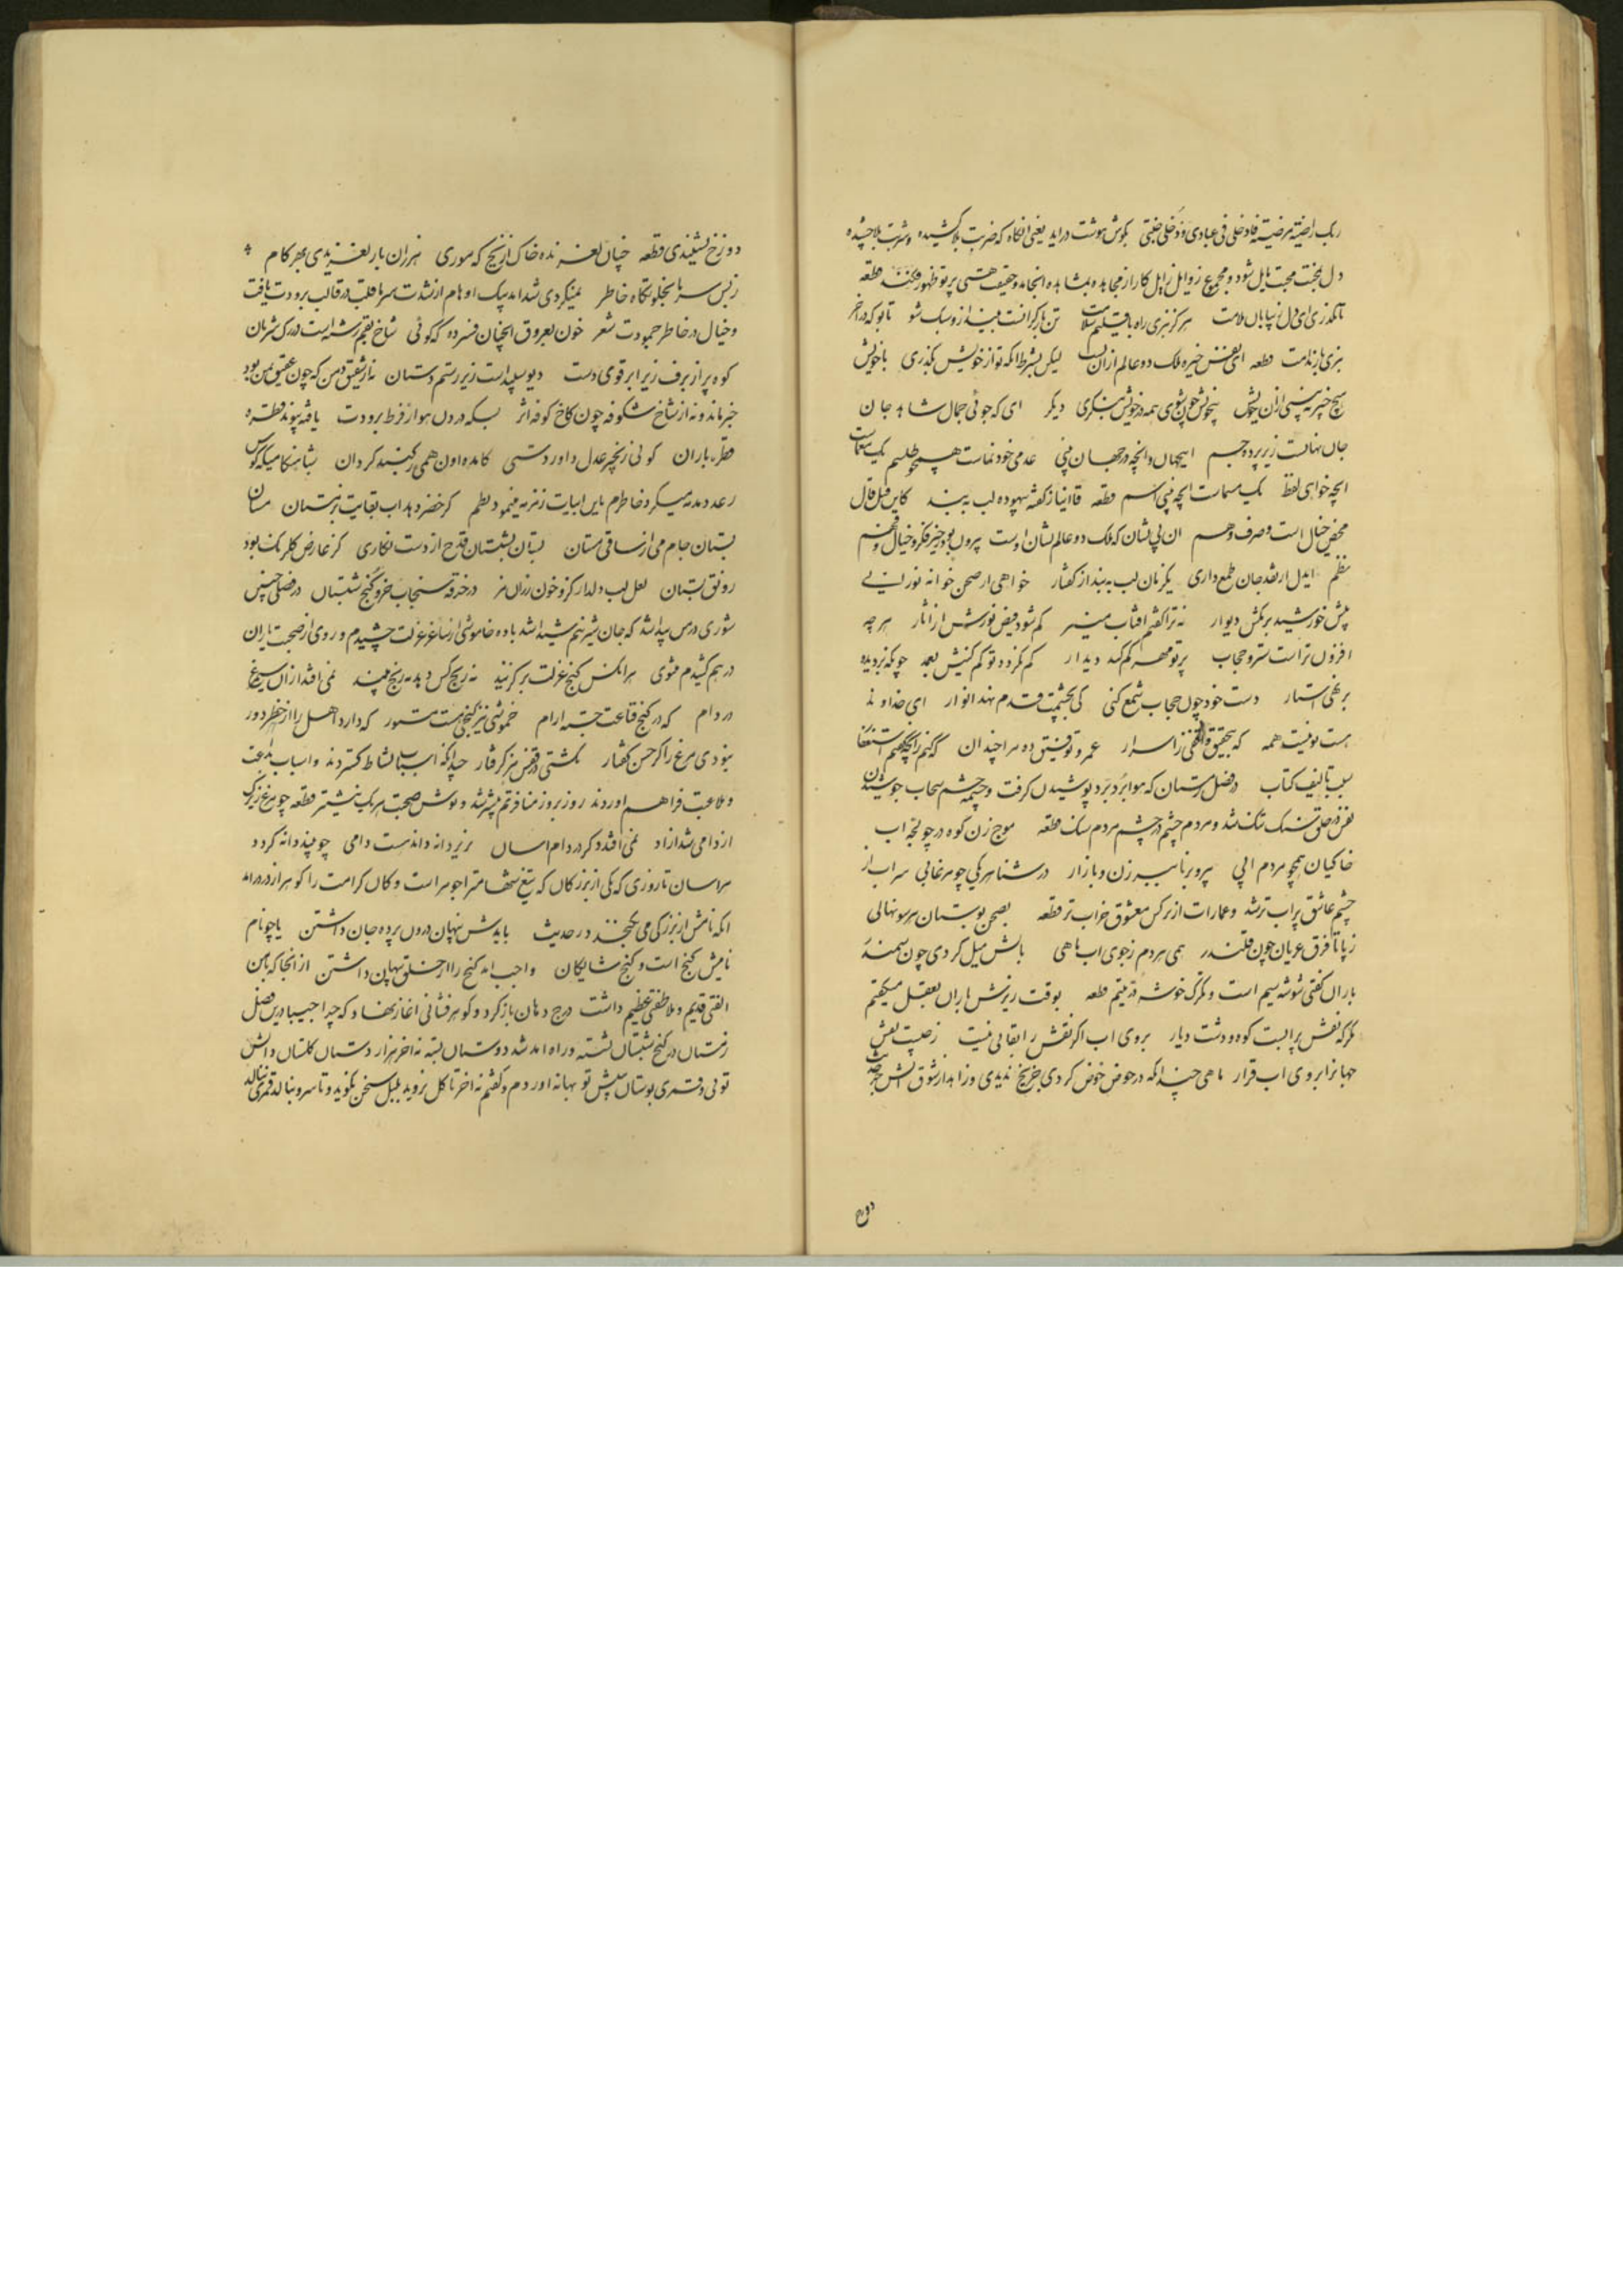 ربک راضیة مرضیة فادخلی فی عبادی وادخلی جنتی بکوش هوشت دراید یعنی انکاه که ضربت بلا کشیده و شربت بلا چشیده
دل بمحبت
تا نگذری ای دل ز بیابان ملامت هرکز نبری راه باقلیم سلامت
بنری بار ندامت قطعه ای نفس خیره ملک دو عالم از ان تست لیکن بشرط انکه تو از خویش بکذری با خویش
هیچ خبر نه بینی از ان خویش بیخویش چون شوی همه در خویش بنکری دیکر ای که جوئی جمال شاهد جان
جان نهانست زیر پرده جسم اینجهان وانچه در جهان بینی عدمی خود نماست همچو طلسم یک
انچه خوانی لفظ یک مسماست انچه بینی اسم قطعه قاانیا ز کفته بیهوده لب ببند کاین قیل و قال
محض خیال است و صرف وهم ان بی نشان که ملک دو عالم نشان اوست بیرون بود ز خیز فکر و خیال و فهم
نظم ایدل ار نقد جان طمع داری یکزمان لب ببند از کفتار خواهی ار صحن خانه نورانی
پیش خورشید بر مکش دیوار نه ترا کفتم افتاب منیر کم شود فیض نورش از اثار هرچه
افزون تر است ستر و حجاب پرتو مهر کم کند دیدار کم نکردد تو کم کنیش بعمد چونکه بر دیده
برنهی استار دست خود چون حجاب شمع کنی کی بچشمت قدم نهد انوار ای خداوند
هست تو نیست همه که بتحقیق واقفی ز اسرار عمر و توفیق ده مرا چندان که کنم زانچه کفتم استغفار
سبب تالیف کتاب در فصل زمستان که هوا برد برد پوشیدن کرفت و چشمه چشم سحاب جوشیدن
نفس در حلق تنک تنک شد و مردم چشم در چشم مردم سنک قطعه موج زن کوه در چو لجه اب
خاکیان همچو مردم ابی پیر و برنا ببرزن و بازار در شنا هر یکی چو مرغابی سراب از
چشم عاشق پراب تر شد و عمارات از نرکس معشوق خراب تر قطعه بصحن بوستان هر سو نهالی
ز پا تا فرق عریان چون قلندر همی مردم ز جوی اب ماهی بالش میل کردی چون سمندر
باران کفتی شوشه سیم است و تکرک خوشه در یتیم قطعه بوقت ریزش باران بعقل میکفتم
مکر که نقش بر ابست کوه و دشت و دیار بروی اب اکر نقش را بقائی نیست ز چیست نقش
جهانرا بروی اب قرار ماهی چندانکه در حوض خوض کردی جز یخ ندیدی و زاهد از شوق اتش
دوزخ
دوزخ نشنیدی قطعه چنان لغزنده خاک از یخ که موری هزاران بار لغزیدی بهر کام
ز بس سرما بجلوتکاه خاطر نمیکردی شد امد پیک اوهام از شدت سرما قلب در قالب برودت یافت
و خیال در خاطر جمودت شعر خون بعروق انچنان فسرده که کوئی شاخ بقم رسته است در رک شریان
کوه پر از برف زیر ابر قوی دست دیو سپید است زیر رستم دستان نه از شقیق دمن که چون عقیق یمن بود
خبر ماند و نه از شاخ شکوفه چون کاخ کوفه اثر بسکه در دل هوا از فرط برودت یافته پیوند قطره
قطره باران کوئی زنجیر عدل داور دستی کامده اون همی ز کنبد کردان
رعد دمدمه میکرد خاطرم باین ابیات زمزمه مینمود نظم کر خضر دهد اب بقایت بزمستان مستان
بستان جام می از ساقی مستان بستان بشبستان قدح از دست نکاری کز عارض کلرنک بود
رونق بستان لعل لب دلدار کز و خون رزان مز در خرقه سنجاب خز و کنج شبستان در فصلی چنین
شوری در من پیدا شد که جان شیرینم شیدا شد باده خاموشی از ساغر عزلت چشیدم و روی از صحبت یاران
درهم کشیدم مثنوی هر انکس کنج عزلت برکزیند نه رنج کس دهد نه رنج بیند نمی افتد از ان سیمرغ
در دام که در کنج قناعت جسته ارام خموشی نیز کنجی هست مستور که دارد اهل را از خطر دور
نبودی مرغ را کر حسن کفتار نکشتی در قفس هرکز کرفتار چندانکه اسباب نشاط کستردند و اسباب ملاعبت
و ملاعبت فراهم اوردند روز بروز منافرتم بیشتر شد و نوش صحبت هر یک نیشتر قطعه چو مرغ زیرک
از دامی شد ازاد نمی افتد دکر در دام اسان بزیر دانه دانست دامی چو بیند دانه کردد
هراسان تا روزی که یکی از بزرکان که تیغ شهامترا جوهر است و کان کرامت را کوهر از در درامد
انکه نامش از بزرکی می نکنجد در حدیث بایدش پنهان درون پرده جان داشتن یا چو نام
نامیش کنج است و کنج شایکان واجب امد کنج را از خلق پنهان داشتن از انجا که با من
الفتی قدیم و ملاطفتی عظیم داشت درج دهان باز کرد و کوهر فشانی اغاز نهاد که چرا حبیبا درین فصل
زمستان در کنج شبستان نشسته و راه امد شد دوستان بسته نه اخر هزار دستان کلستان دانش
توئی و قمری بوستان بینش تو بهانه اوردم و کفتم نه اخر تا کل نروید بلبل سخن نکوید و تا سرو نبالد قمری ننالد